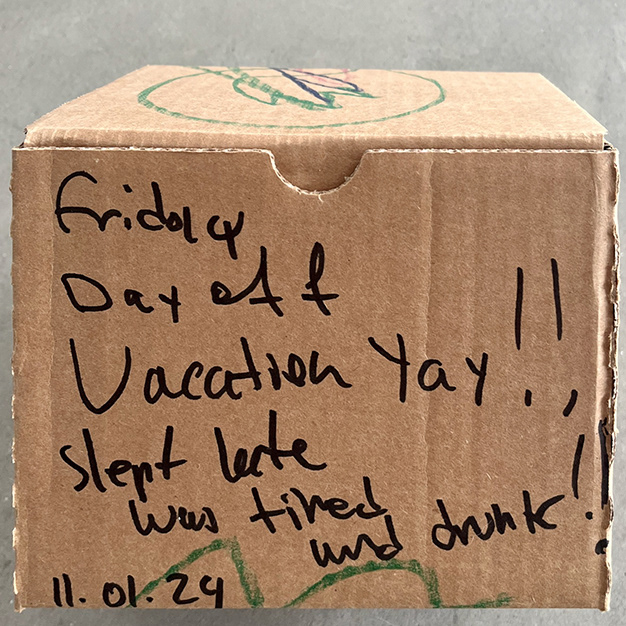 Friday
Day off
Vacation Yay!!
slept late
was tired
und drunk!!
11.01.29